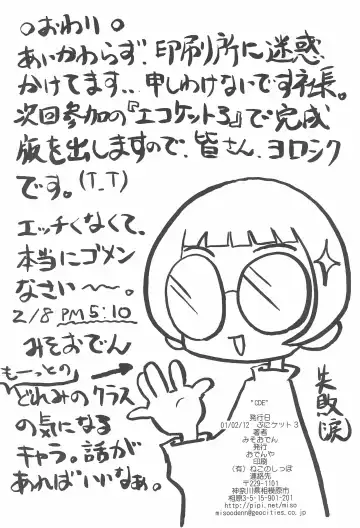 ○おわり○
あいかわらず、印刷所に迷惑
かけてます、、申しわけないです社長。
次回参加の『エコケット3』で完成
版を出しますので、皆さん、ヨロシク
です。(T_T)
エッチくなくて、
本当にゴメン
なさい〜〜。
2/8 PM5:10
みそおでん
もーっとの
どれみのクラス
の気になる
キャラ。話が
あればいいなぁ。
失敗涙
発行日
01/02/12 ぷにケット3
著者
みそおでん
発行
おでんや
印刷
(有)ねこのしっぽ
連絡先
〒229-1101
神奈川県相模原市
相原3-5-15-901-201
http://pipi.net/miso
misoodenn@geocities.co.jp